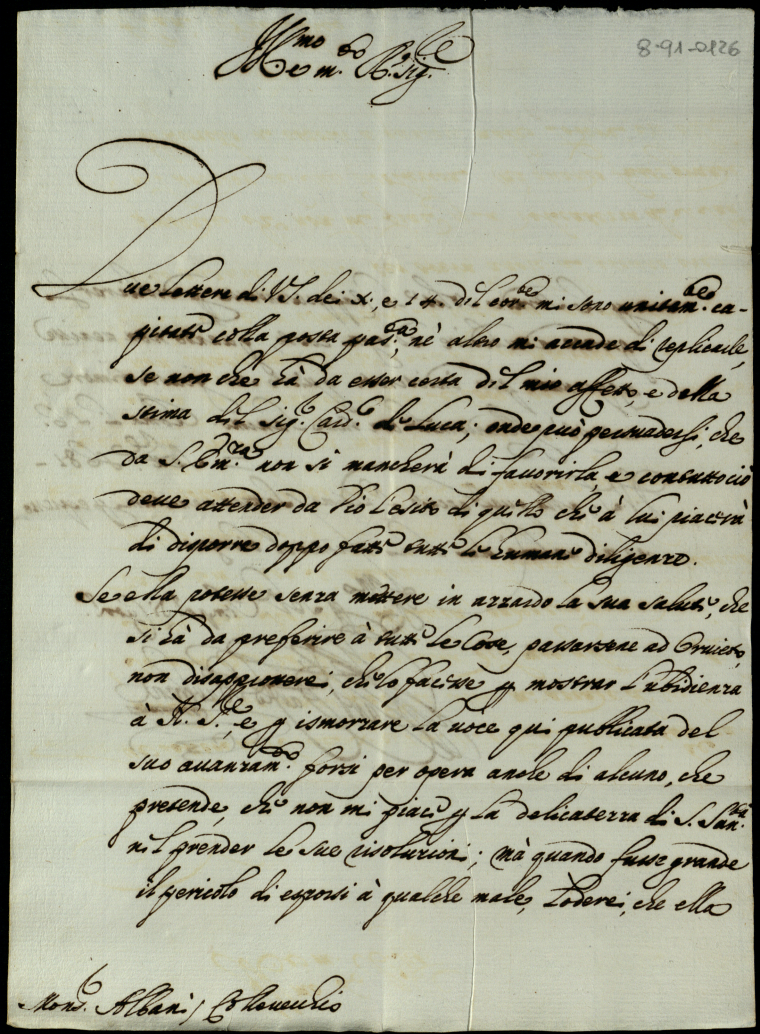 8-91-0126
Ill.mo e m.to R. Sig.re
Due lettere di VS. dei X., e 14. del cor.te mi sono unitam.te ca-
pitate colla posta pas.ta, nè altro mi accade di replicarle,
se non che hà da esser certa del mio affetto, e della
stima del Sig.r Card.l de Luca; onde può persuadersi, che
da S. Em.za non si mancherà di favorirla, e contuttociò
deve attender da Dio l'esito di quello che à lui piacerà
di disporre doppo fatte tutte le humane diligenze.
Se ella potesse senza mettere in azzardo la sua salute, che
si hà da preferire à tutte le Cose, passarsene ad Orvieto,
non disapproverei, che lo facesse p mostrar l'ubidienza
à N. S.re, e p ismorzare la uoce qui publicata del
suo auanzam.to forsi per opera anche di alcuno, che
pretende, che non mi piace p la delicatezza di S. San.tà
nel prender le sue risoluzioni; mà quando fusse grande
il pericolo di esporsi à qualche male, loderei, che ella
Mons.r Albani / Colleuecchio